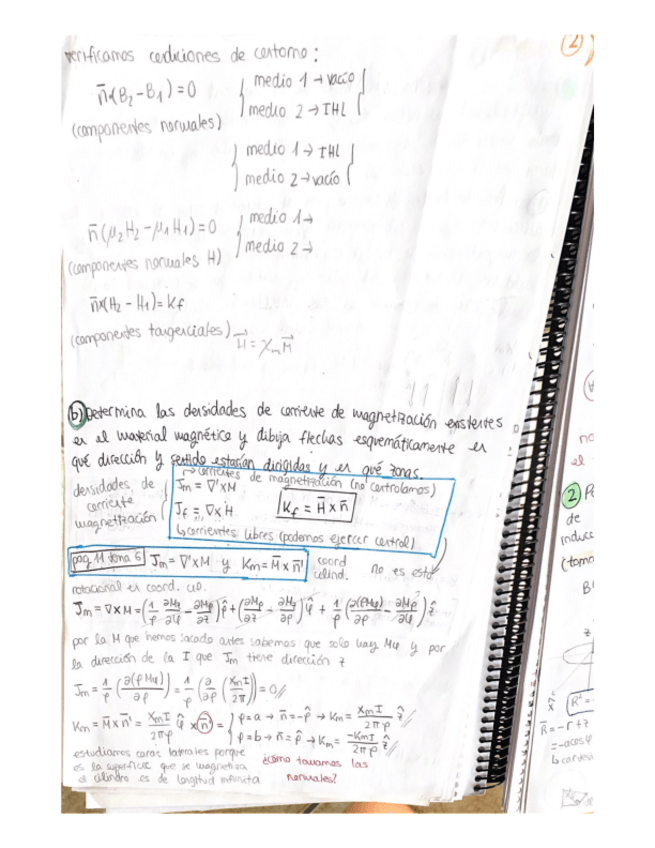 verificamos condiciones de contorno:
(2)
n̄·(B₂-B₁)=0
medio 1 → vacío
medio 2 → IHL
(componentes normales)
medio 1 → IHL
medio 2 → vacío
n̄(μ₂H₂-μ₁H₁)=0
medio 1 →
medio 2 →
(componentes normales H)
n̄x(H₂-H₁)=Kf
(componentes tangenciales)
H⃗=χₘM⃗
b) Determina las densidades de corriente de magnetización existentes
en el material magnético y dibuja flechas esquemáticamente en
qué dirección y sentido estarían dirigidas y en qué zonas.
densidades de
corriente
magnetización
→ corrientes de magnetización (no controlamos)
Jm = ∇'xM
Jf = ∇xH
Kf = H̄ x n̄
↳ corrientes libres (podemos ejercer control)
pág. 11 tema 6
Jm = ∇'xM y Km = M̄ x n̄'
coord
cilind.
no es esta
rotacional en coord. cil.
Jm = ∇xM = (1/ρ ∂Mz/∂φ - ∂Mφ/∂z) ρ̂ + (∂Mρ/∂z - ∂Mz/∂ρ) φ̂ + 1/ρ (∂(ρMφ)/∂ρ - ∂Mρ/∂φ) ẑ
por la M que hemos sacado antes sabemos que solo hay Mφ y por
la dirección de la I que Jm tiene dirección z
Jm = 1/ρ (∂(ρMφ)/∂ρ) = 1/ρ (∂/∂ρ (χmI/2π)) = 0//
Km = M̄ x n̄' = χmI/2πρ φ̂ x n̄' =
ρ=a → n̄=-ρ̂ → Km = χmI/2πρ ẑ
ρ=b → n̄=ρ̂ → Km = -χmI/2πρ ẑ //
estudiamos caras laterales porque
es la superficie que se magnetiza
el cilindro es de longitud infinita
¿cómo tomamos las
normales?
no
el
2
de
induce
(toma
z
R²=
R̄=-r+z
=-acosφ